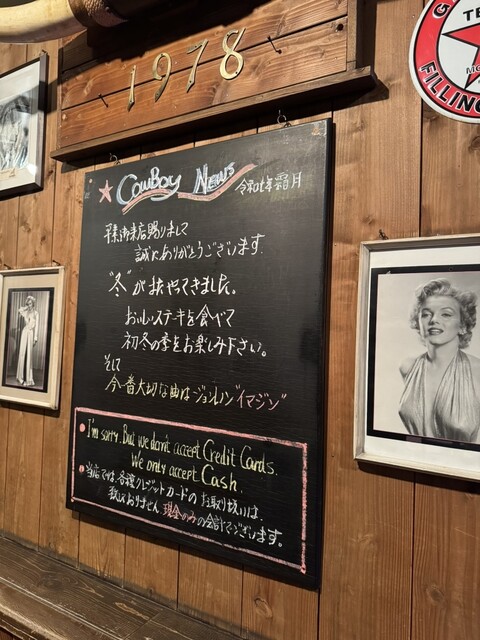 1978
COWBOY NEWS
令和七年霜月
平素御来店賜りまして
誠にありがとうございます.
"冬"が早やってきました。
おいしいステーキを食べて
初冬の季をお楽しみ下さい。
そして
今一番大切な曲はジョンレノン"イマジン"
I'm sorry. But we don't accept Credit Cards.
We only accept Cash.
当店では、各種クレジットカードのお取り扱いは、
致しておりません 現金のみの会計でございます。
TE
FILLING